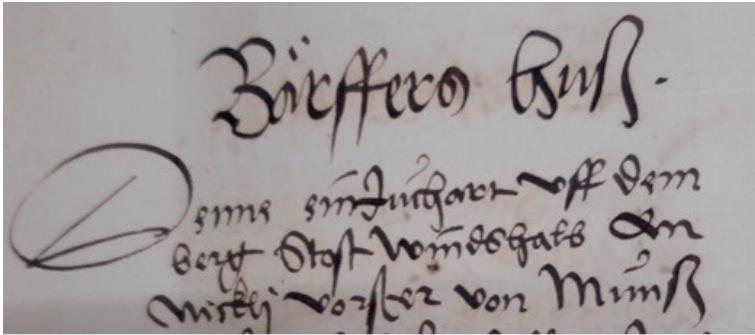 Bärffers huß.
Denne ein Juchart vff dem
berg Stost windshalb An
Nickli vorster von Münß